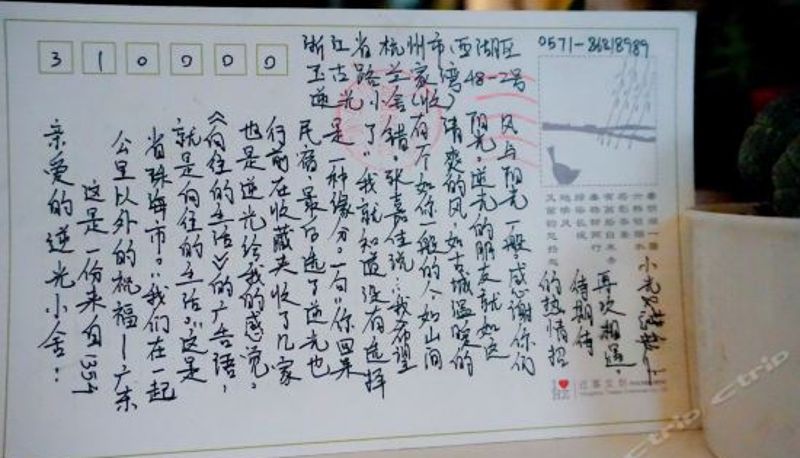 310000
浙江省杭州市西湖区
玉古路兰家湾48-2号
逆光小舍(收)
0571-86218989
亲爱的逆光小舍:
这是一份来自1359
公里以外的祝福—广东
省珠海市。"我们在一起
就是向往的生活",这是
《向往的生活》的广告语,
也是逆光给我的感觉。
行前在收藏夹收了几家
民宿,最后选了逆光也
是一种缘分。一句"你回来
了"我就知道没有选择
错。张嘉佳说:"我希望
有个如你一般的人,如山间
清爽的风,如古城温暖的
阳光。"逆光的朋友就如这
风与阳光一般。感谢你们
的热情招
待期待
再次相遇。
ctrip
ctrip